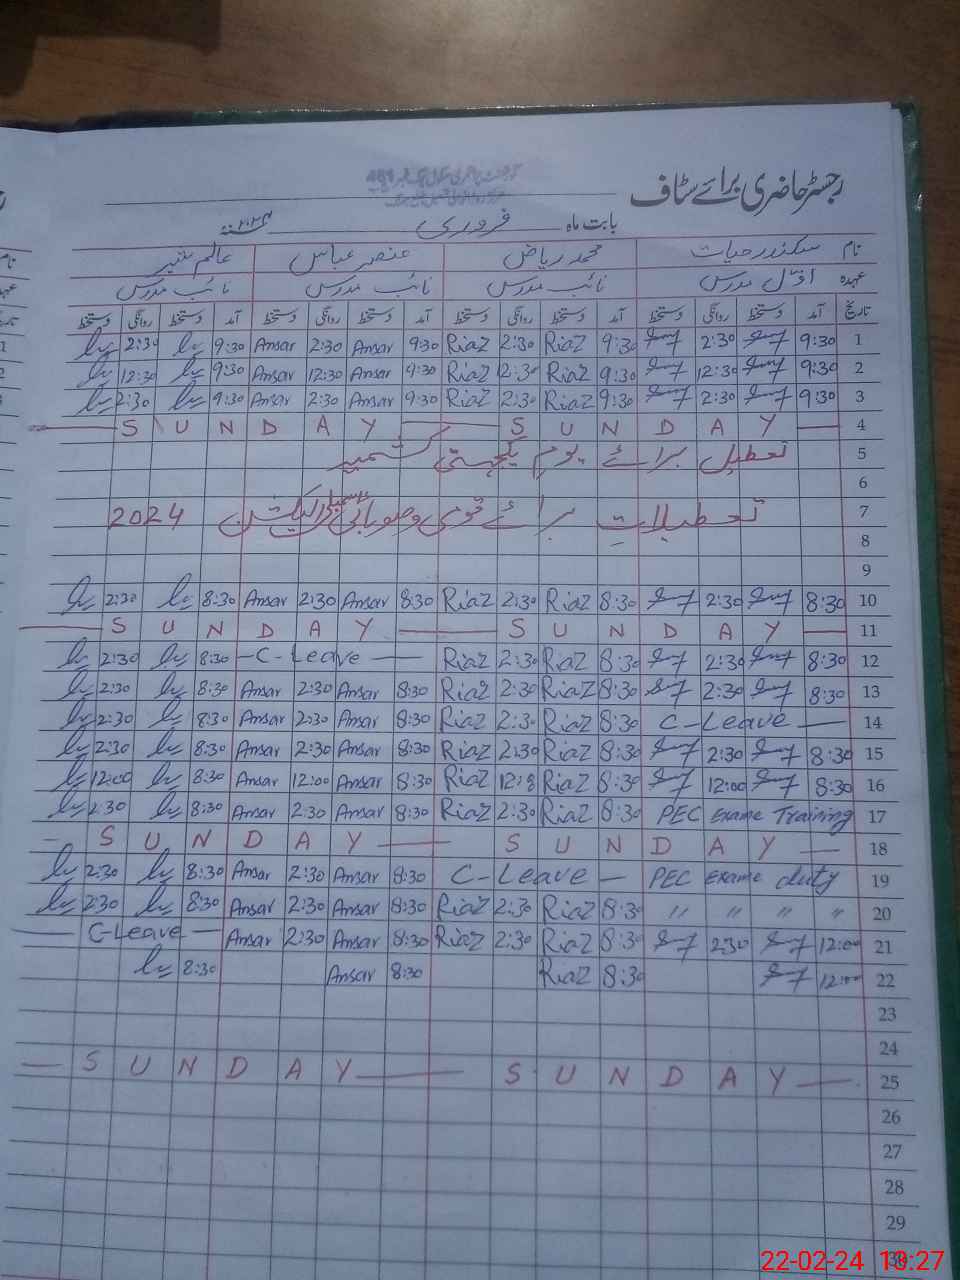 رجسٹر حاضری برائے سٹاف
بابت ماہ فروری ۲۰۲۴ء
نام سکندر حیات محمد ریاض عنصر عباس عالم شیر
عہدہ اوّل مدرس نائب مدرس نائب مدرس نائب مدرس
تاریخ آمد دستخط روانگی دستخط آمد دستخط روانگی دستخط آمد دستخط روانگی دستخط آمد دستخط روانگی دستخط
2:30 9:30 Ansar 2:30 Ansar 9:30 Riaz 2:30 Riaz 9:30 2:30 9:30 1
12:30 9:30 Ansar 12:30 Ansar 9:30 Riaz 12:30 Riaz 9:30 12:30 9:30 2
2:30 9:30 Ansar 2:30 Ansar 9:30 Riaz 2:30 Riaz 9:30 2:30 9:30 3
S U N D A Y S U N D A Y 4
تعطیل برائے یوم یکجہتی کشمیر 5
6
تعطیلات برائے قومی و صوبائی اسمبلی الیکشن 2024 7
8
9
2:30 8:30 Ansar 2:30 Ansar 8:30 Riaz 2:30 Riaz 8:30 2:30 8:30 10
S U N D A Y S U N D A Y 11
2:30 8:30 -C-Leave- Riaz 2:30 Riaz 8:30 2:30 8:30 12
2:30 8:30 Ansar 2:30 Ansar 8:30 Riaz 2:30 Riaz 8:30 2:30 8:30 13
2:30 8:30 Ansar 2:30 Ansar 8:30 Riaz 2:30 Riaz 8:30 C-Leave- 14
2:30 8:30 Ansar 2:30 Ansar 8:30 Riaz 2:30 Riaz 8:30 2:30 8:30 15
12:00 8:30 Ansar 12:00 Ansar 8:30 Riaz Riaz 8:30 12:00 8:30 16
2:30 8:30 Ansar 2:30 Ansar 8:30 Riaz 2:30 Riaz 8:30 PEC Exame Training 17
S U N D A Y S U N D A Y 18
2:30 8:30 Ansar 2:30 Ansar 8:30 C-Leave- PEC Exame duty 19
2:30 8:30 Ansar 2:30 Ansar 8:30 Riaz 2:30 Riaz 8:30 " " " " 20
C-Leave- Ansar 2:30 Ansar 8:30 Riaz 2:30 Riaz 8:30 2:30 12:00 21
8:30 Ansar 8:30 Riaz 8:30 12:00 22
23
24
S U N D A Y S U N D A Y 25
26
27
28
29
22-02-24